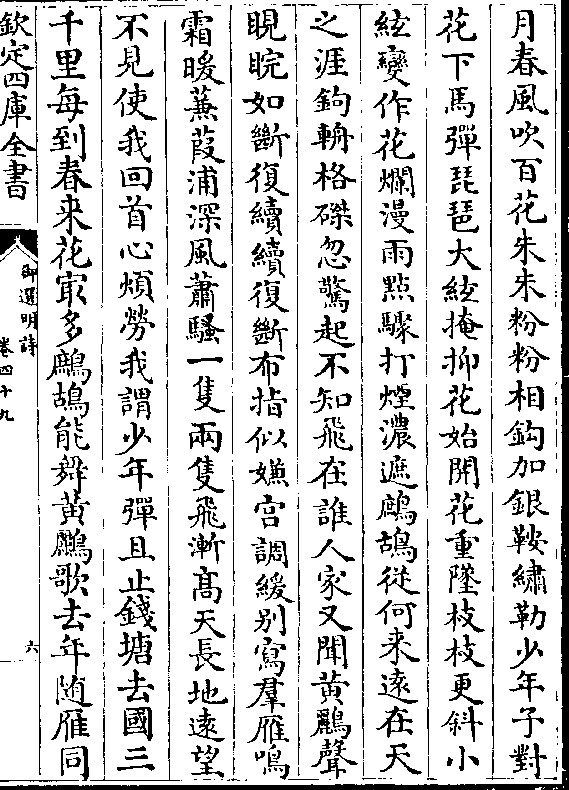 月春風吹百花朱朱粉粉相鈎加銀鞍繡勒少年子對
花下馬彈琵琶大絃掩抑花始開花重墜枝枝更斜小
絃變作花爛漫雨點驟打煙濃遮鷓鴣從何来遠在天
之涯鉤輈格磔忽驚起不知飛在誰人家又聞黄鸝聲
睍睆如斷復續續復斷布指似嫌宫調緩别寫羣雁鳴
霜暖蒹葭浦深風蕭騷一隻兩隻飛漸髙天長地遠望
不見使我回首心煩勞我謂少年彈且止錢塘去國三
千里每到春来花㝡多鷓鴣能舞黄鸝歌去年随雁同
欽定四庫全書
御選明詩
卷四十九
六